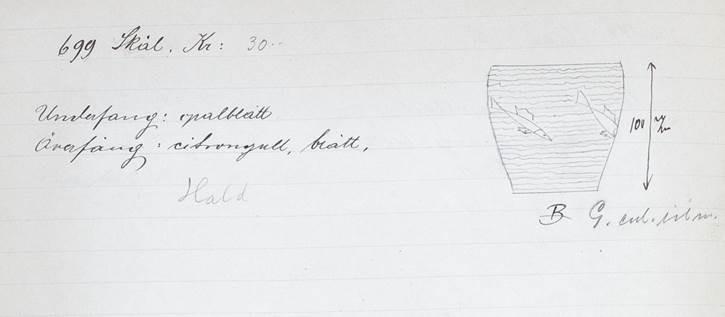 699 Skål. Kr: 30--
Underfång: opalblått
Överfång: citrongull, blått.
Hald
100 m/m
B G.